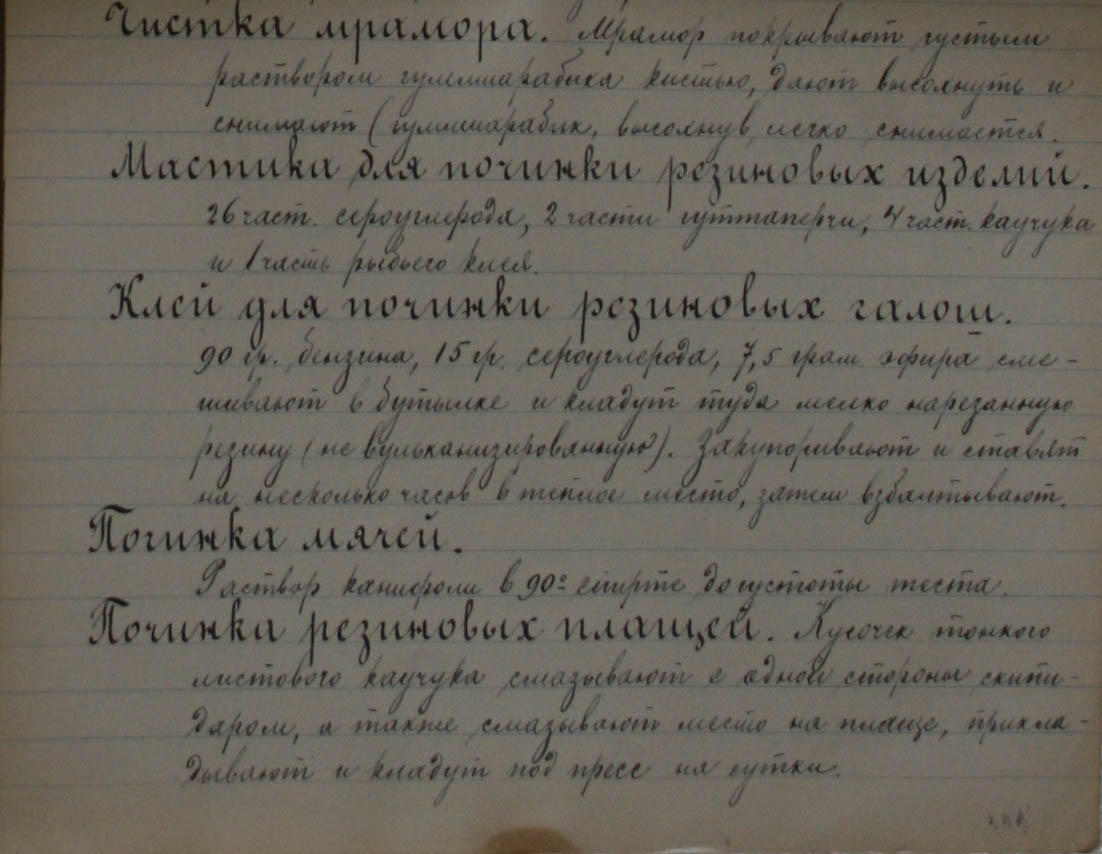 Чистка мрамора. Мрамор покрывают густым
раствором гуммиарабика кистью, дают высохнуть и
снимают (гуммиарабик, высохнув, легко снимается.
Мастика для починки резиновых изделий.
26 част. сероуглерода, 2 части гуттаперчи, 4 част. каучука
и 1 часть рыбьего клея.
Клей для починки резиновых галош.
90 гр. бензина, 15 гр. сероуглерода, 7,5 грам. эфира сме-
шивают в бутылке и кладут туда мелко нарезанную
резину (не вульканизированную). Закупоривают и ставят
на несколько часов в теплое место, затем взбалтывают.
Починка мячей.
Раствор канифоли в 90° спирте до густоты теста.
Починка резиновых плащей. Кусочек тонкого
листового каучука смазывают с одной стороны скипи-
даром, а также смазывают место на плаще, прикла-
дывают и кладут под пресс на сутки.